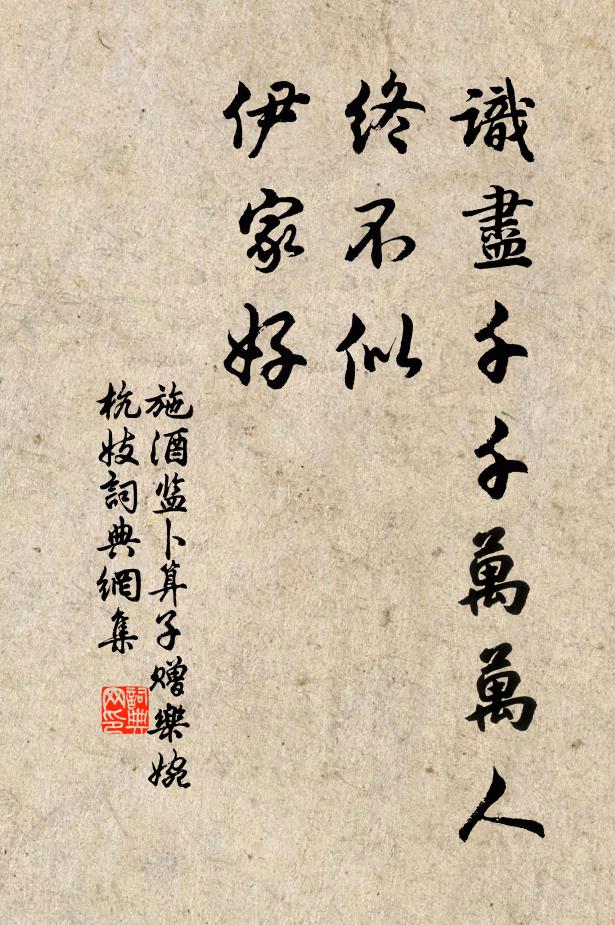 識盡千千萬萬人
終不似
伊家好
施酒监卜算子赠樂婉
杭妓詞典網集
詞典
网印